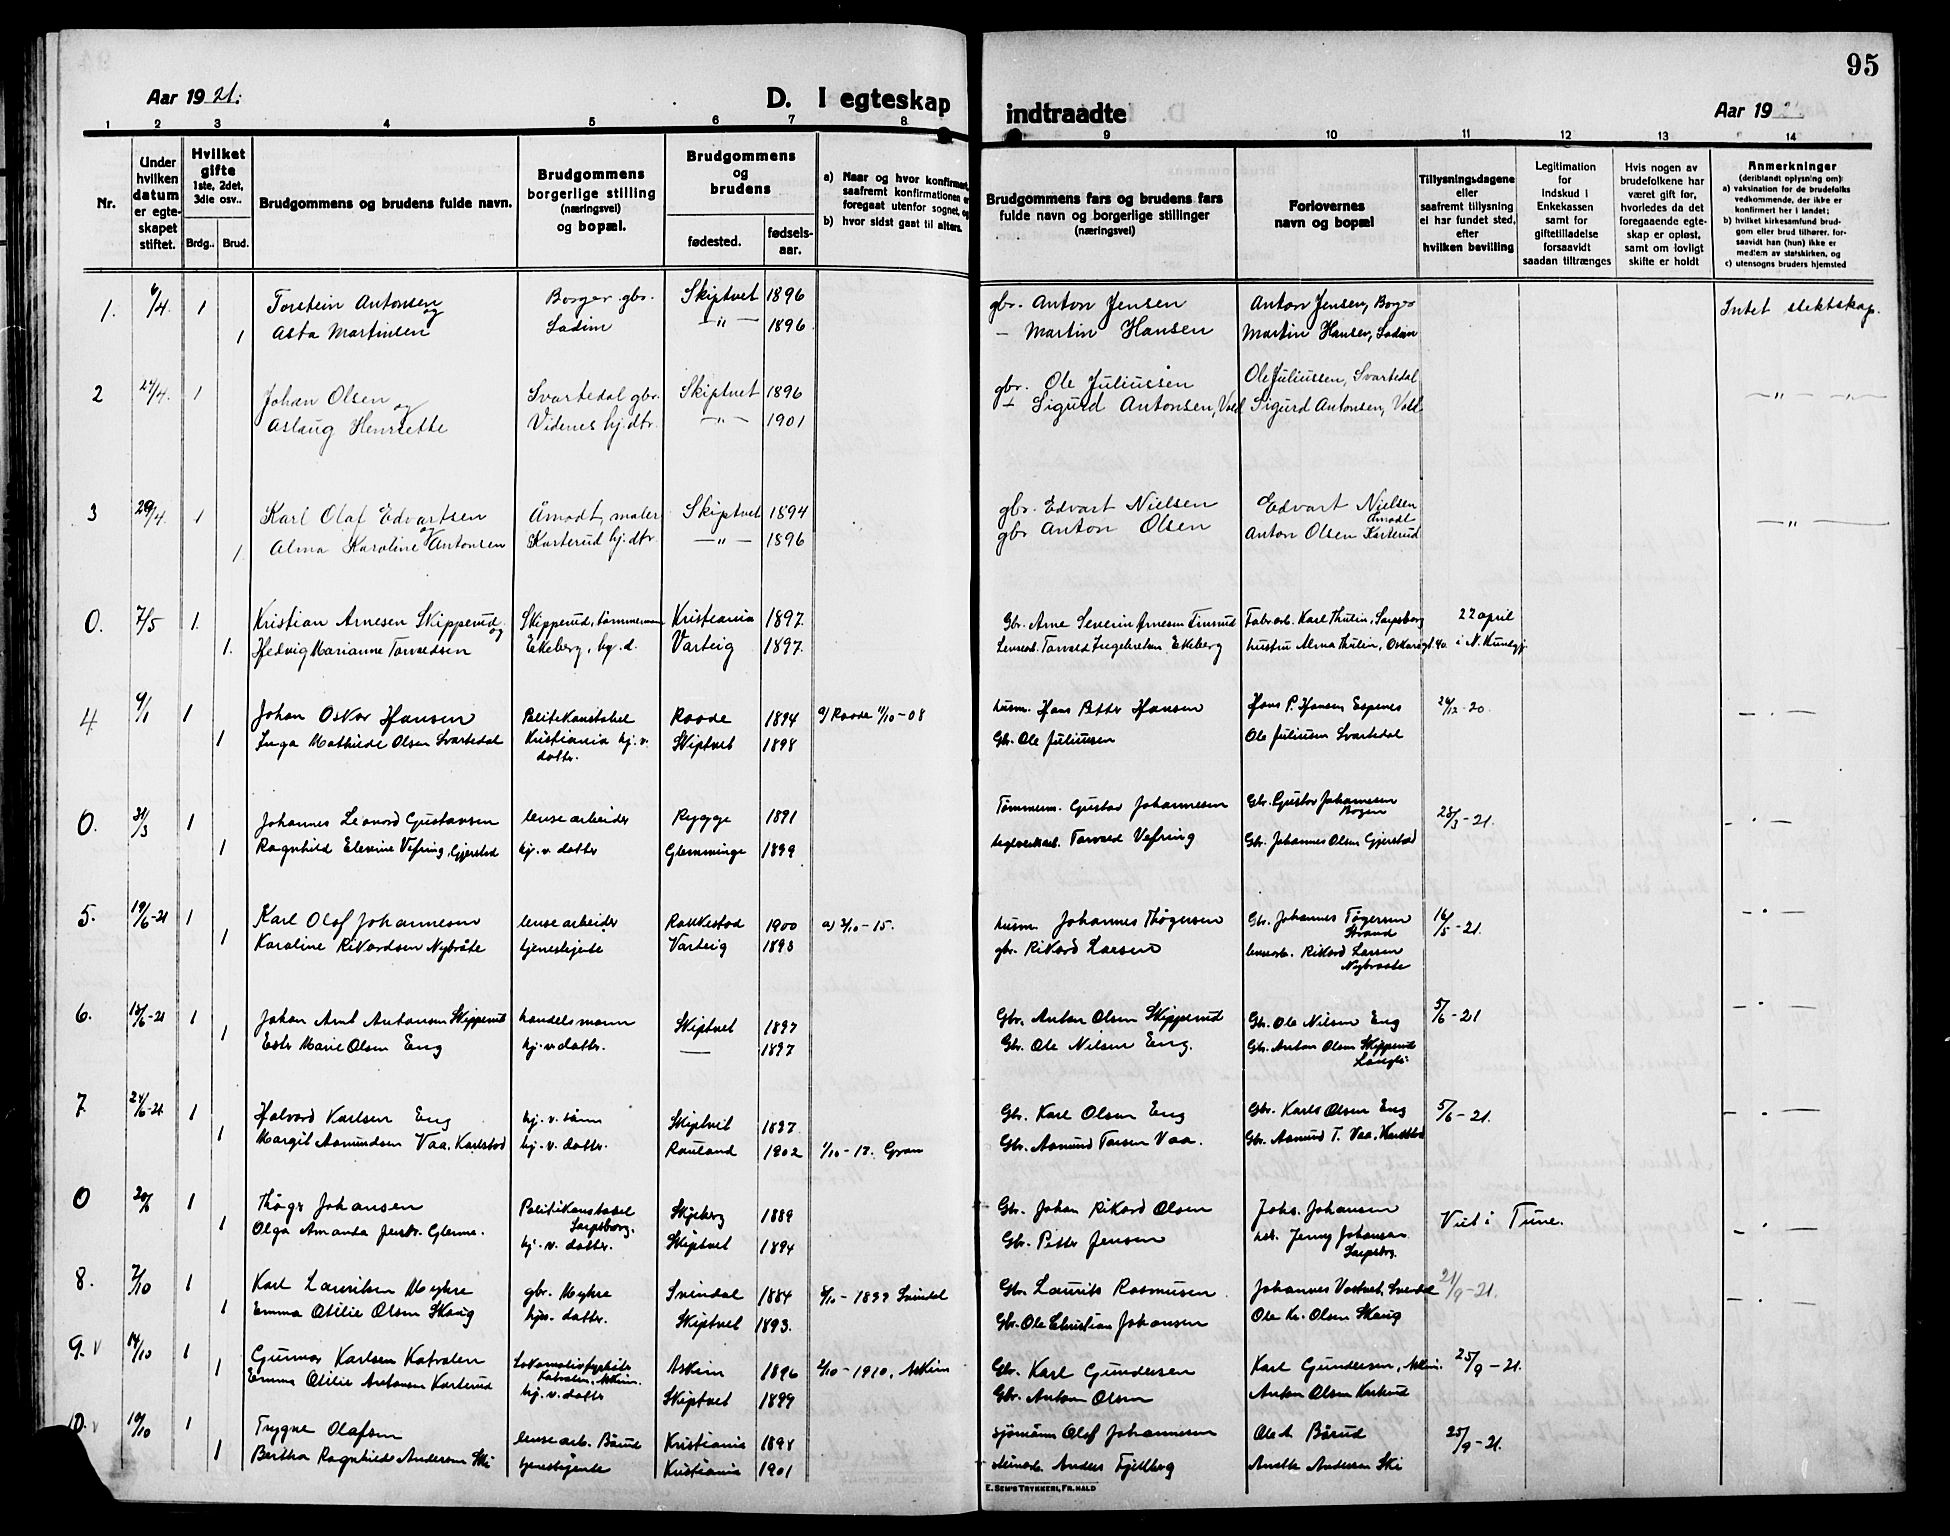 95
Aar 1921.
D. I egteskap
indtraadte
Aar 1921.
1 2 3 4 5 6 7 8 9 10 11 12 13 14
Nr.
Under hvilken datum er egteskapet stiftet.
Hvilket gifte 1ste, 2det, 3die osv..
Brdg.. Brud.
Brudgommens og brudens fulde navn.
Brudgommens borgerlige stilling (næringsvei) og bopæl.
Brudgommens og brudens
fødested. fødselsaar.
a) Naar og hvor konfirmert, saafremt konfirmationen er foregaat utenfor sognet, og
b) hvor sidst gaat til alters.
Brudgommens fars og brudens fars fulde navn og borgerlige stillinger (næringsvei)
Forlovernes navn og bopæl
Tillysningsdagene eller saafremt tillysning ei har fundet sted, efter hvilken bevilling
Legitimation for indskud i Enkekassen samt for giftetilladelse forsaavidt saadan tiltrænges
Hvis nogen av brudefolkene har været gift før, hvorledes da det foregaaende egteskap er opløst, samt om lovligt skifte er holdt
Anmerkninger (deriblandt oplysning om):
a) vaksination for de brudefolks vedkommende, der ikke er konfirmert her i landet;
b) hvilket kirkesamfund brudgom eller brud tilhører, forsaavidt han (hun) ikke er medlem av statskirken, og
c) utensogns bruders hjemsted
1. 6/4. 1 Torstein Antonsen og Borger gbr. Skiptvet 1896 gbr. Anton Jensen Anton Jensen, Borger Intet slektskap.
1 Asta Martinsen Lodim — " — 1896. — Martin Hansen Martin Hansen, Lodim
2 24/4. 1 Johan Olsen og Svartedal gbr. Skiptvet 1896 gbr. Ole Juliussen Ole Juliussen, Svartedal — " — " —
Aslaug Henriette Videnes hj. dtr. — " — 1901 — Sigurd Antonsen, Vold Sigurd Antonsen, Vold
3 29/4. 1 Karl Olaf Edvartsen og Åmodt, maler Skiptvet 1894 gbr. Edvart Nielsen Edvart Nielsen Åmodt — " —
1 Alma Karoline Antonsen Karterud hj. dtr. — " — 1896 gbr Anton Olsen Anton Olsen Karterud
0. 7/5 1. Kristian Arnesen Skipperud og Skipperud, tømmermann Kristiania 1897. Gbr. Arne Severin Arnesen Fabr.arb. Karl Thulin, Sarpsborg 22 april
1. Hedvig Marianne Torvaldsen Ekeberg, hj. d. Varteig 1897. Torvald Ingebretsen Ekeberg hustru Alma Thulin, Oskarsgt. 40 i N. Kundgj.
4 1 Johan Oskar Hansen Politikonstabel Raade 1894 a) Raade 4/10-08 husm. Hans Petter Hansen Hans P. Hansen Espenes 26/12-20. — . —
1 Inga Mathilde Olsen Svartedal Kristiania hj. v. datter. Skiptvet 1898 Gbr. Ole Juliussen Ole Juliussen Svartedal
0. 31/3 1 Johannes Leonard Gustavsen lensearbeider Rygge 1891 Tømmerm. Gustav Johannesen Gbr. Gustav Johannesen Bogen 28/3-21. — . —
1 Ragnhild Elevine Vefring, Gjerstad hj. v. datter Glemminge 1899 teglverksarb. Torvald Vefring Gbr. Johannes Olsen Gjerstad
5. 19/6-21 1 Karl Olaf Johannesen lensearbeider Rakkestad 1900 a) 3/10-15. husm. Johannes Thøgersen Gbr. Johannes Tøgersen Strand 16/5-21. — . —
1 Karoline Rikardsen Nybråte tjenestejente Varteig 1893 gbr. Rikard Larsen lensearb. Rikard Larsen Nybraate
6. 18/6-21 1 Johan Arnt Antonsen Skipperud handelsmann Skiptvet 1897 Gbr. Anton Olsen Skipperud Gbr. Ole Nilsen Eng 5/6-21 — . —
1 Ester Marie Olsen Eng hj. v. datter. — 1897 Gbr. Ole Nilsen Eng. Gbr. Anton Olsen Skipperud
7. 24/6-21 1 Halvard Karlsen Eng hj. v. sønn Skiptvet 1897. Gbr. Karl Olsen Eng Gbr. Karls Olsen Eng 5/6-21. — . —
1 Margit Aamundsen Vaa. Karlstad hj. v. datter. Rauland 1902 1/10-17. Gran Gbr. Aamund Tarsen Vaa. Gbr. Aamund T. Vaa. Karlstad
0 1 Thøger Johansen Politikonstabel Sarpsborg. Skjeberg 1889 Gbr. Johan Rikard Olsen Johs. Johansen Viet i Tune. — . —
1 Olga Amanda hj. v. datter. Skiptvet 1894 Gbr. Petter Jensen Jenny Johansen Sarpsborg
8. 7/10 1 Karl Lauritsen Myhre gbr. Myhre Svindal 1884 1/10-1899 Svindal Gbr. Laurits Rasmusen Johannes Vastvet, Svindal 21/9-21. — . —
1 Emma Otilie Olsen Skaug hjv. datter. Skiptvet 1893. Gbr. Ole Christian Johansen Ole Kr. Olsen Skaug
9. v 14/10 1 Gunnar Karlsen Katralen Lokomotivfyrbøter Katralen, Askim. Askim 1896 2/10-1910, Askim Gbr. Karl Gundersen Karl Gundersen, Askim. 25/9-21.
1 Emma Otilie Antonsen Karterud hj. v. datter Skiptvet 1899 Gbr. Anton Olsen Anton Olsen Karterud
10. v 19/10 1 Trygve Olafsen lensearb. Bårud Kristiania 1898 sjømann Olaf Johannesen Ole A Bårud 25/9-21.
1 Bertha Ragnhild Andersen Ski tjenestejente Kristiania 1901 Anders Fjellberg Andersen Ski
E. SEM'S TRYKKERI, FR.HALD